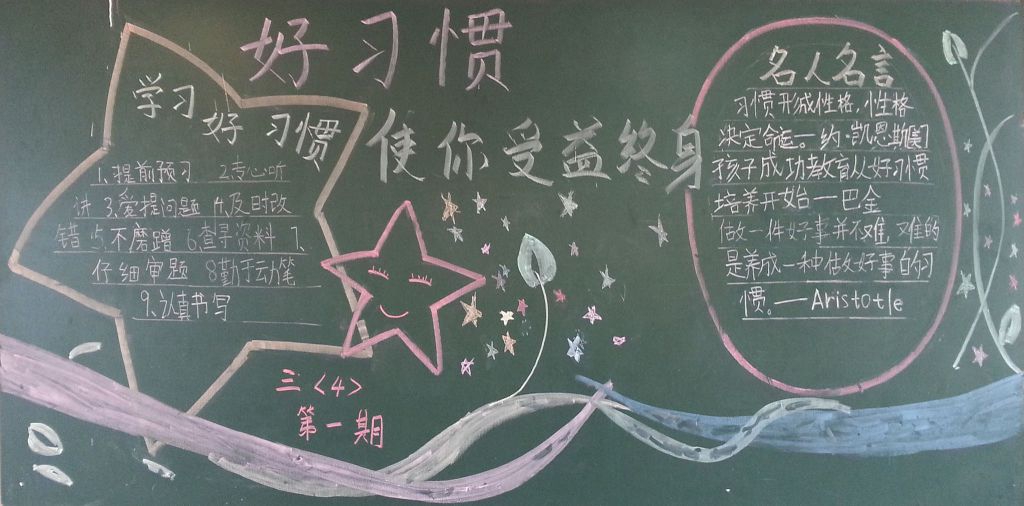 好习惯
使你受益终身
学习
好习惯
1、提前预习 2专心听
讲 3、爱提问题 4、及时改
错 5、不磨蹭 6、查寻资料 7、
仔细审题 8勤于动笔
9、认真书写
三〈4〉
第一期
名人名言
习惯形成性格，性格
决定命运。—约·凯恩斯
孩子成功教育从好习惯
培养开始—巴金
做一件好事并不难，难的
是养成一种做好事的习
惯。—Aristotle